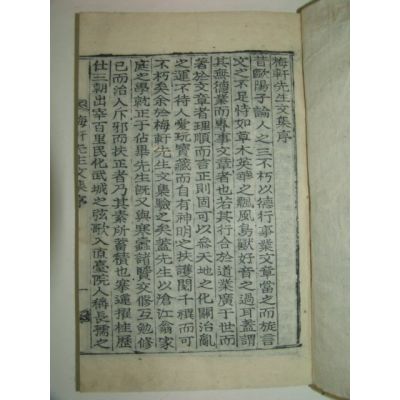 梅軒先生文集序
昔歐陽子論人之三不朽以德行事業文章當之而旋言
文之不足恃如草木英華之飄風鳥獸好音之過耳蓋謂
其無德業而專事文章者也若其行合於道業廣于世而
著於文章者理順而言正則固可以參天地之化關治亂
之運不待人愛玩寶藏而自有神明之扶護閱千禩而可
不朽矣余於梅軒先生文集驗之矣蓋先生以滄江翁家
庭之學就正于佔畢先生旣又與寒蠹諸賢交修互勉修
己而治人斥邪而扶正者乃其素所蓄積也寒遷擢桂歷
仕三朝出宰百里民化武城之弦歌入直臺院人稱長孺之
梅軒先生文集序
一